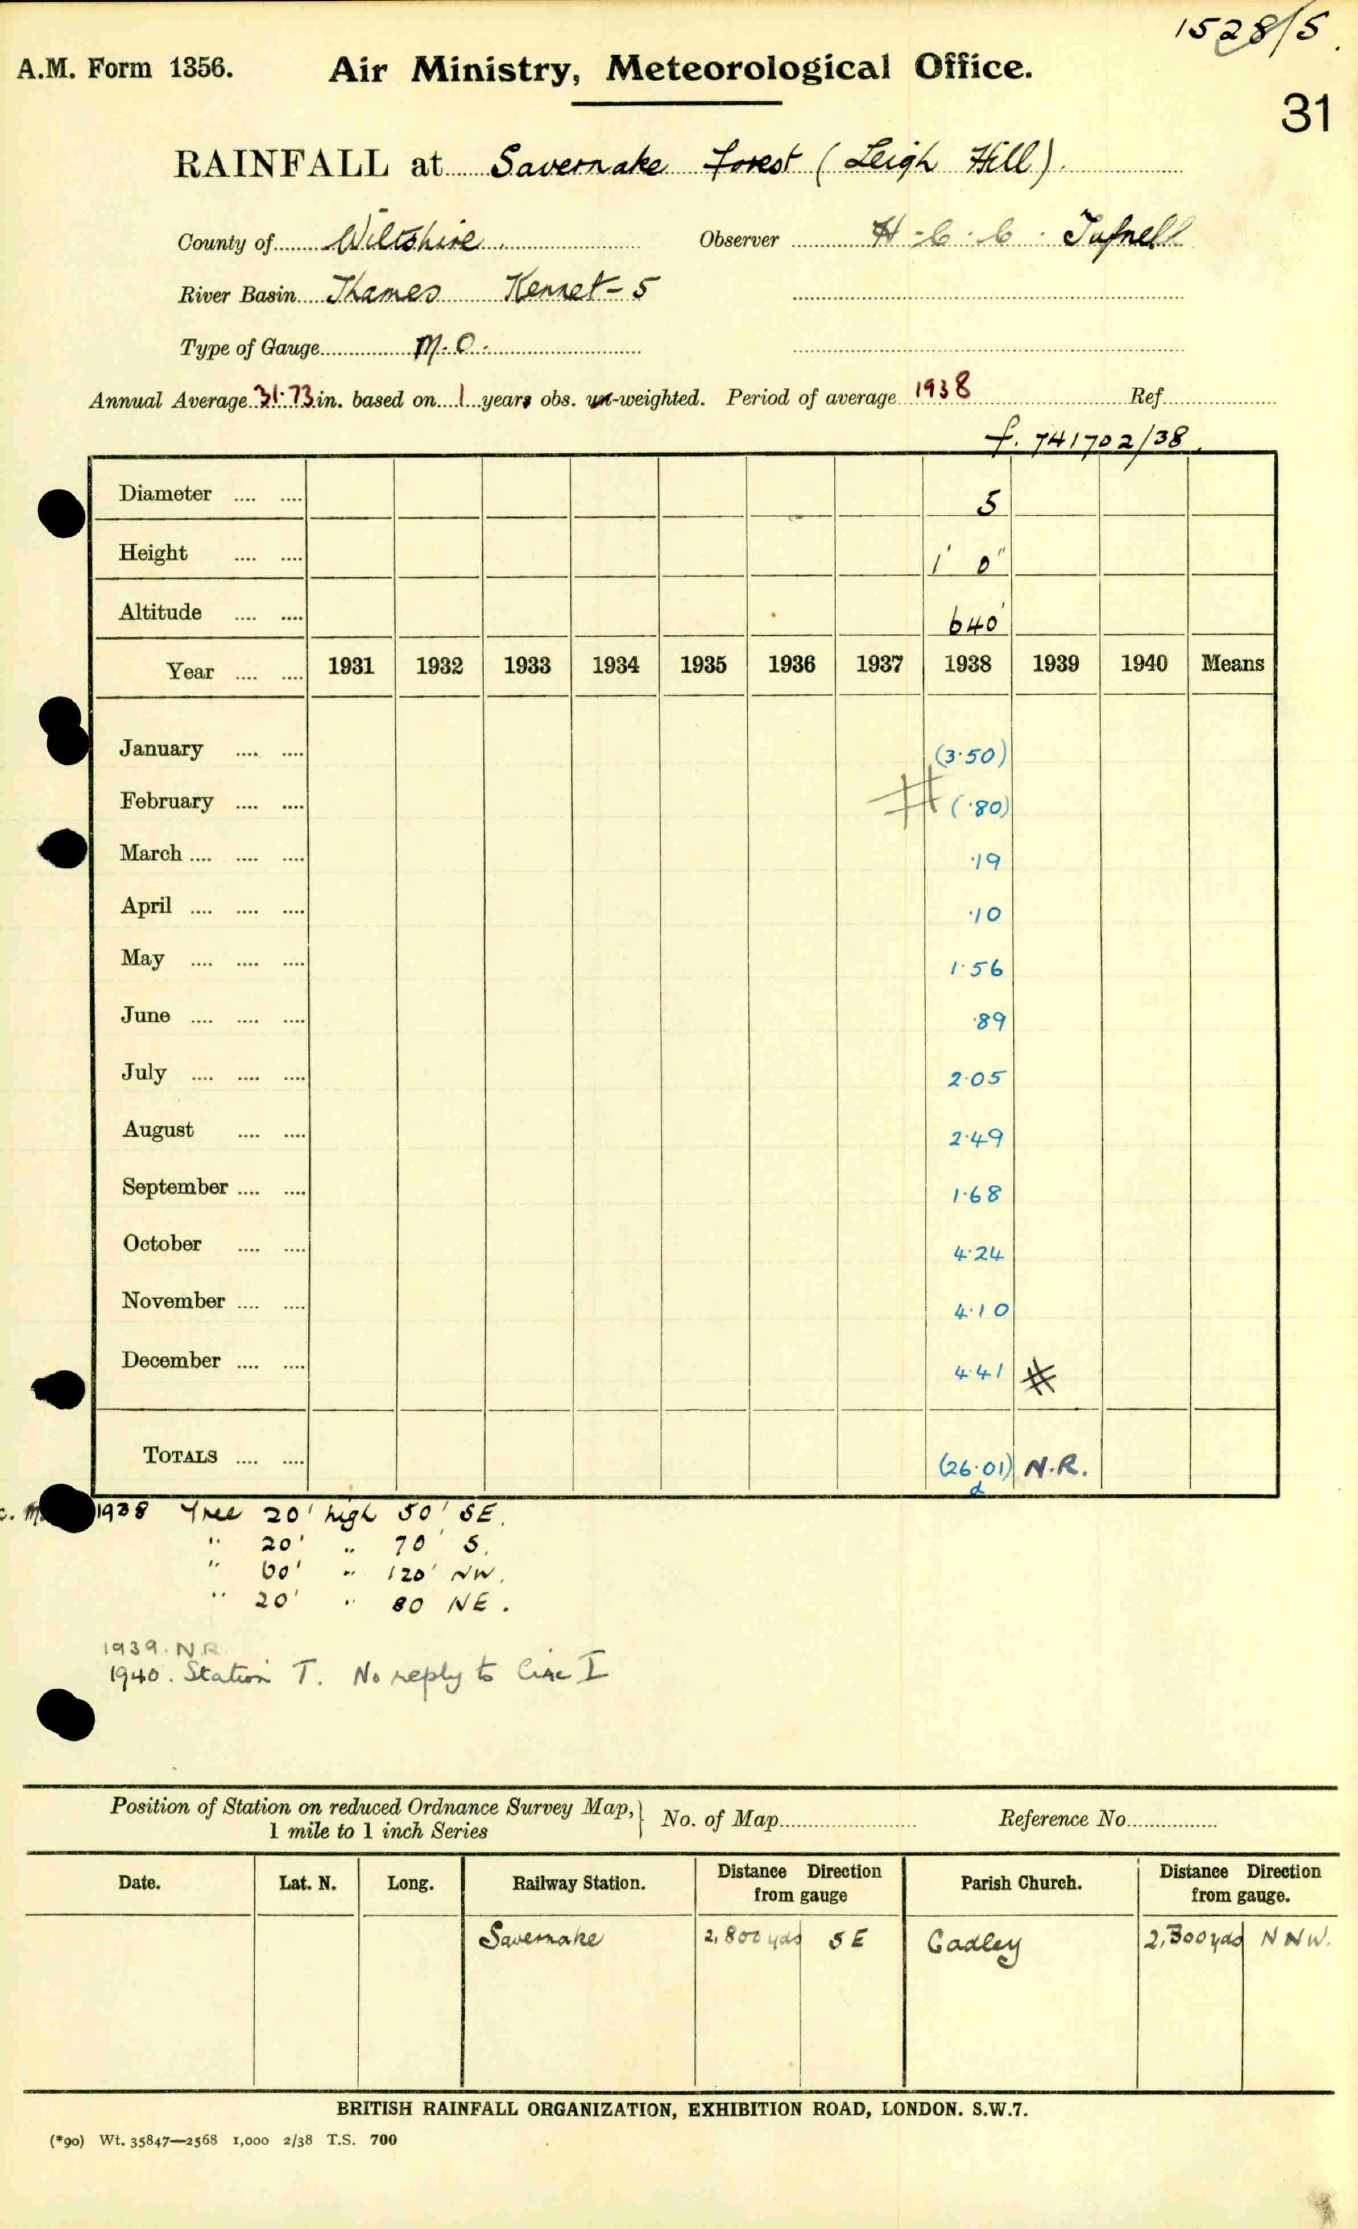 1528/5.
A.M. Form 1356. Air Ministry, Meteorological Office.
31
RAINFALL at Savernake Forest (Leigh Hill).
County of Wiltshire Observer H. C. C. Tufnell
River Basin Thames Kennet-5
Type of Gauge M.O.
Annual Average 31.73 in. based on 1 years obs. un-weighted. Period of average 1938 Ref.
f. 741702/38.
Diameter .... .... 5
Height .... .... 1' 0"
Altitude .... .... 640'
Year .... .... 1931 1932 1933 1934 1935 1936 1937 1938 1939 1940 Means
January .... .... (3.50)
February .... .... # (.80)
March .... .... .... .19
April .... .... .... .10
May .... .... .... 1.56
June .... .... .... .89
July .... .... .... 2.05
August .... .... 2.49
September .... .... 1.68
October .... .... 4.24
November .... .... 4.10
December .... .... 4.41 #
TOTALS .... .... (26.01) N.R.
1938 Tree 20' high 50' SE.
" 20' " 70' S.
" 60' " 120' NW.
" 20' " 80 NE.
1939. N.R.
1940. Station T. No reply to Circ I
Position of Station on reduced Ordnance Survey Map, 1 mile to 1 inch Series } No. of Map Reference No.
Date. Lat. N. Long. Railway Station. Distance Direction from gauge Parish Church. Distance Direction from gauge.
Savernake 2,800 yds SE Cadley 2,300 yds NNW.
BRITISH RAINFALL ORGANIZATION, EXHIBITION ROAD, LONDON. S.W.7.
(*90) Wt. 35847—2568 1,000 2/38 T.S. 700